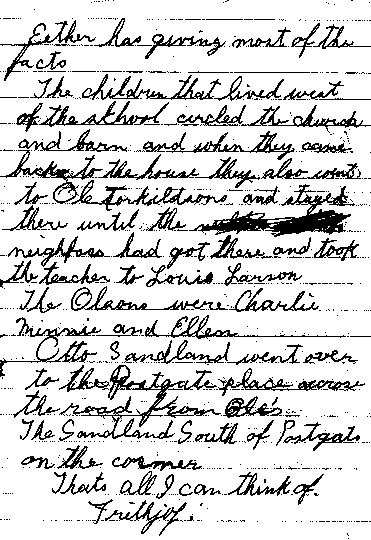 Esther has giving most of the
facts
The children that lived west
of the school circled the church
and barn and when they came
back to the house they also went
to Ole Torkildsons and stayed
there until the
neighbors had got there and took
the teacher to Louis Larson
The Olsons were Charlie
Minnie and Ellen
Otto Sandland went over
to the Postgate place across
the road from Ole's
The Sandland South of Postgats
on the corner
Thats all I can think of.
Frithjof.